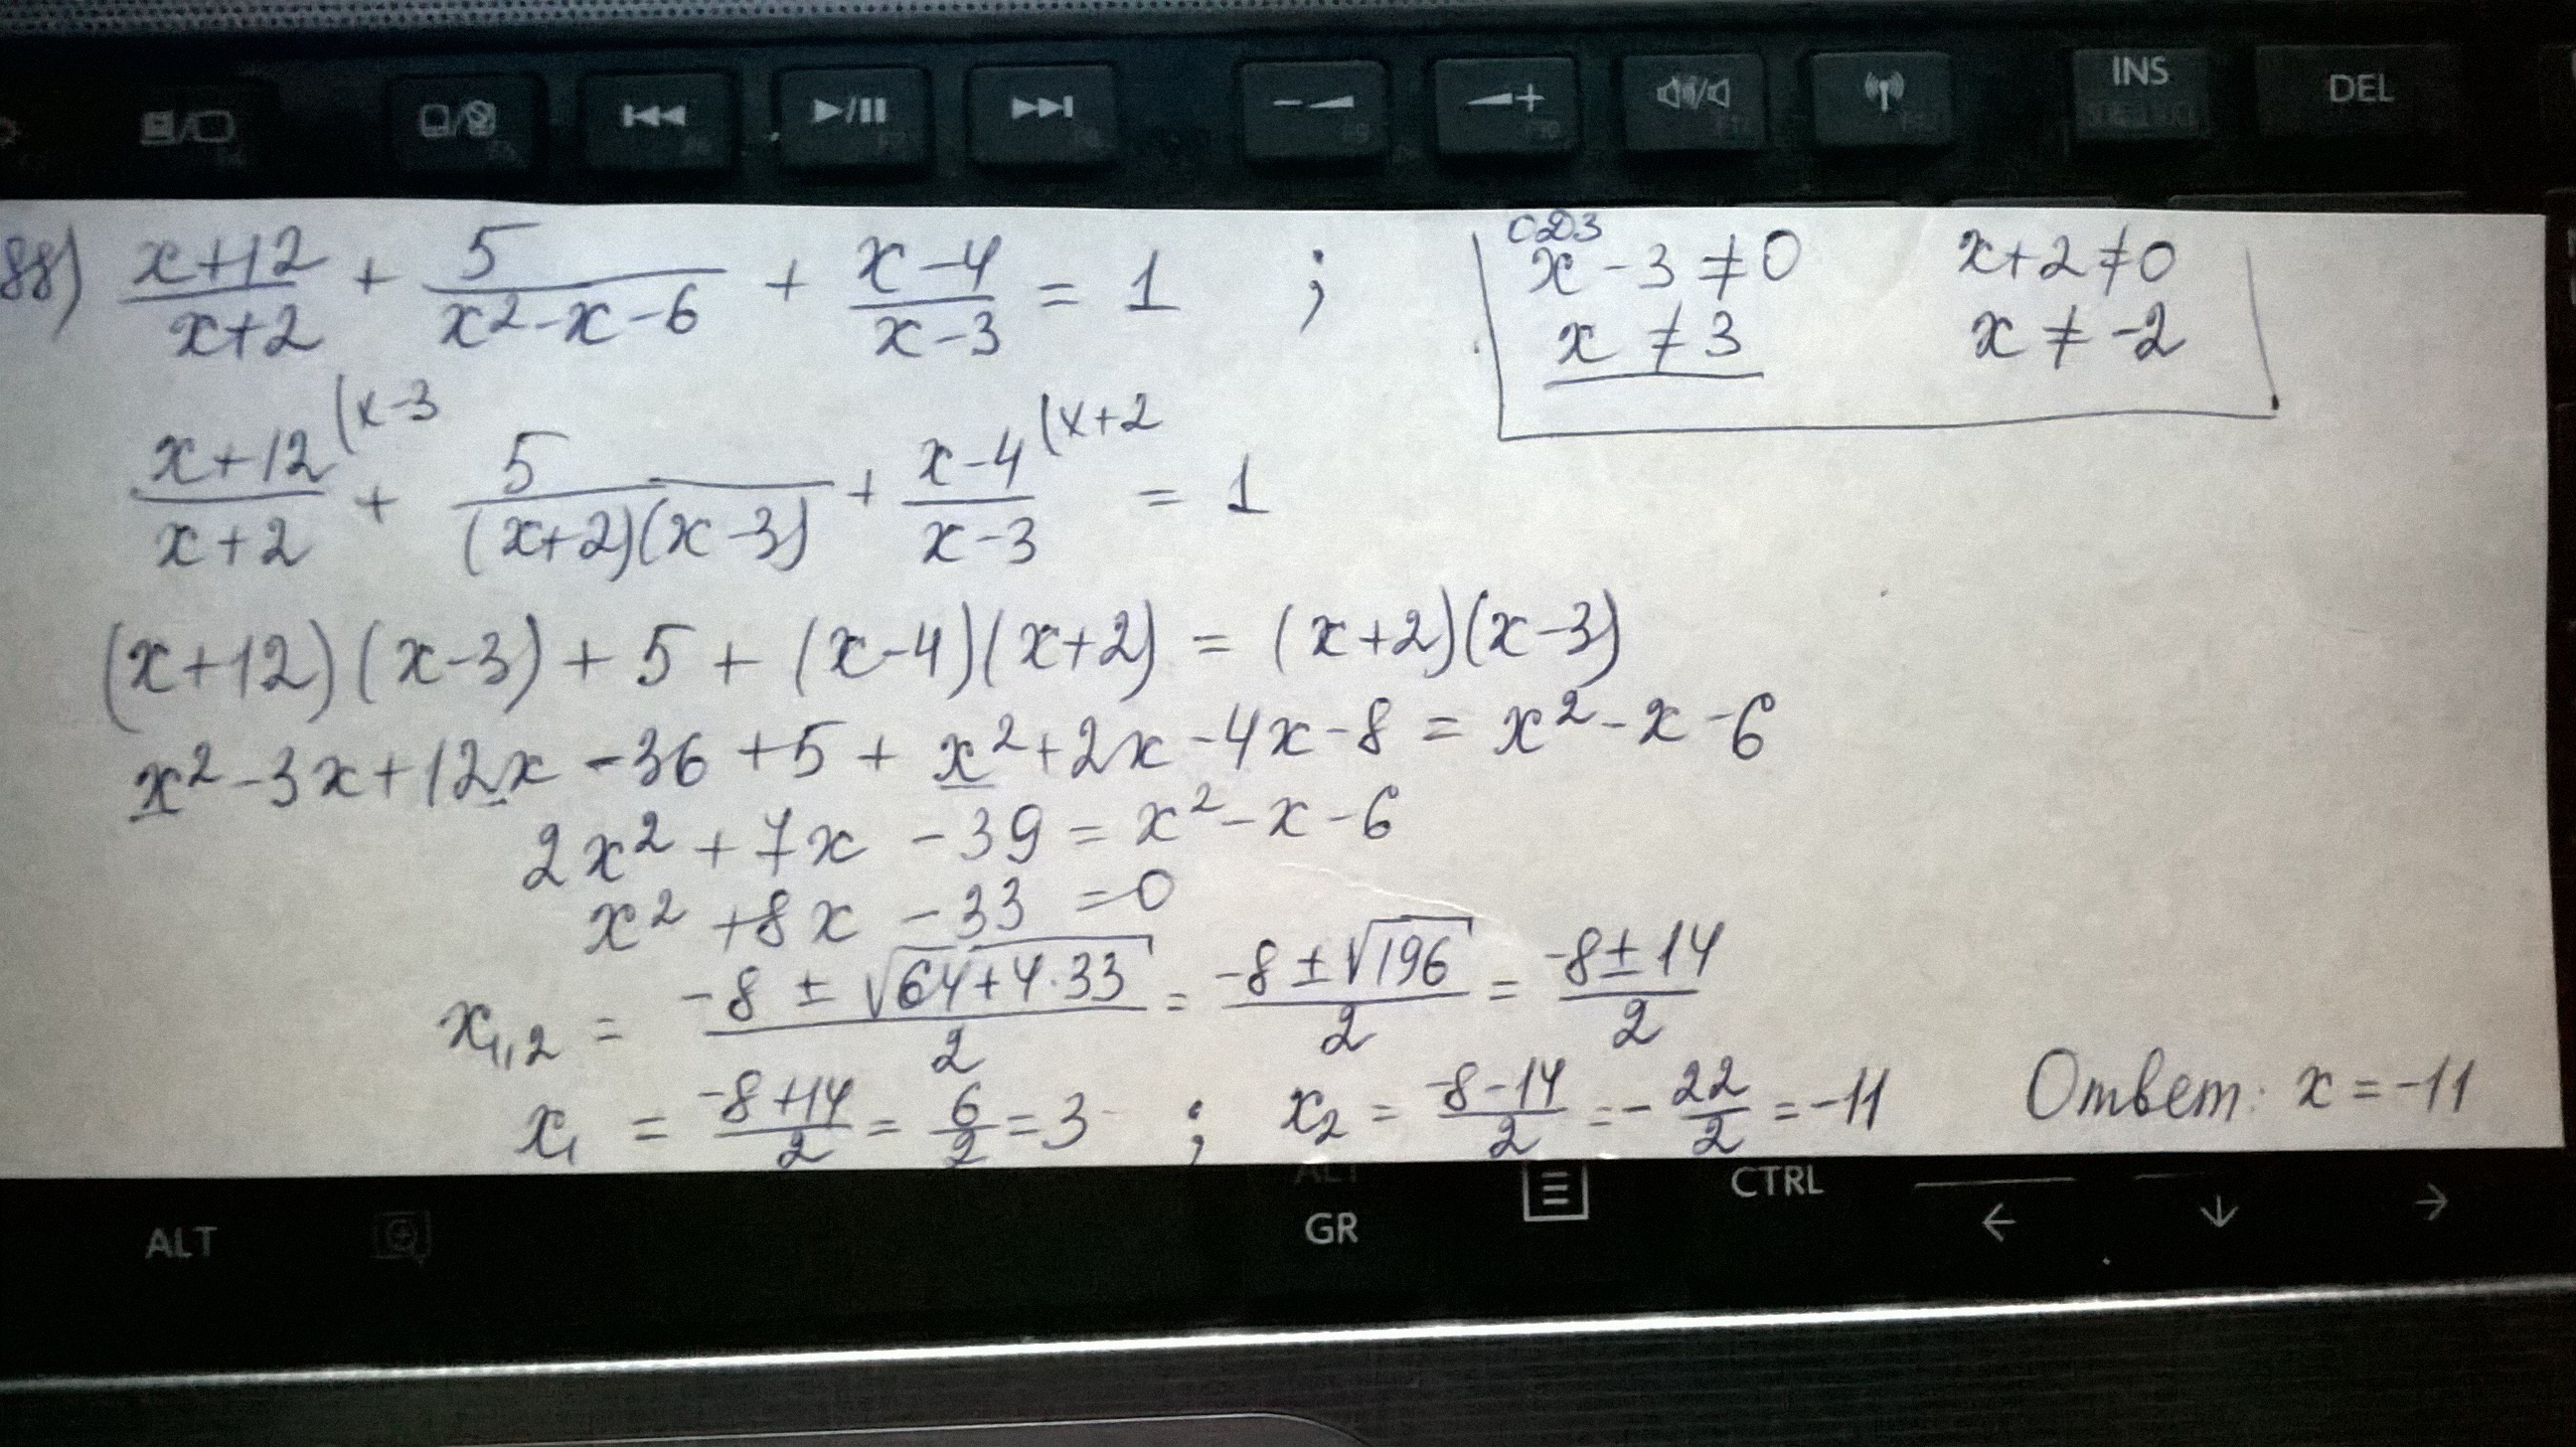 INS
DEL
88) \frac{x+12}{x+2} + \frac{5}{x^2-x-6} + \frac{x-4}{x-3} = 1 ;
ОДЗ
x-3≠0 x+2≠0
x≠3 x≠-2
\frac{x+12}{x+2}^{(x-3} + \frac{5}{(x+2)(x-3)} + \frac{x-4}{x-3}^{(x+2} = 1
(x+12)(x-3)+5+(x-4)(x+2)=(x+2)(x-3)
x^2-3x+12x-36+5+x^2+2x-4x-8=x^2-x-6
2x^2+7x-39=x^2-x-6
x^2+8x-33=0
x_{1,2} = \frac{-8±\sqrt{64+4·33}}{2} = \frac{-8±\sqrt{196}}{2} = \frac{-8±14}{2}
x_1 = \frac{-8+14}{2} = \frac{6}{2} = 3 ; x_2 = \frac{-8-14}{2} = -\frac{22}{2} = -11 Ответ: x=-11
ALT
ALT
GR
CTRL